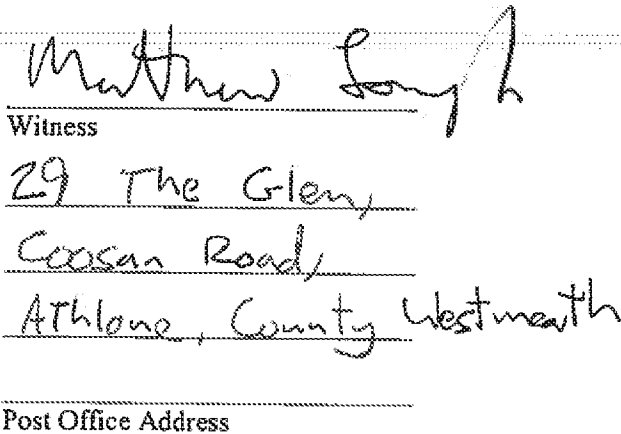 Matthew
Witness
29 The Glen,
Coosan Road,
Athlone, County Westmeath
Post Office Address